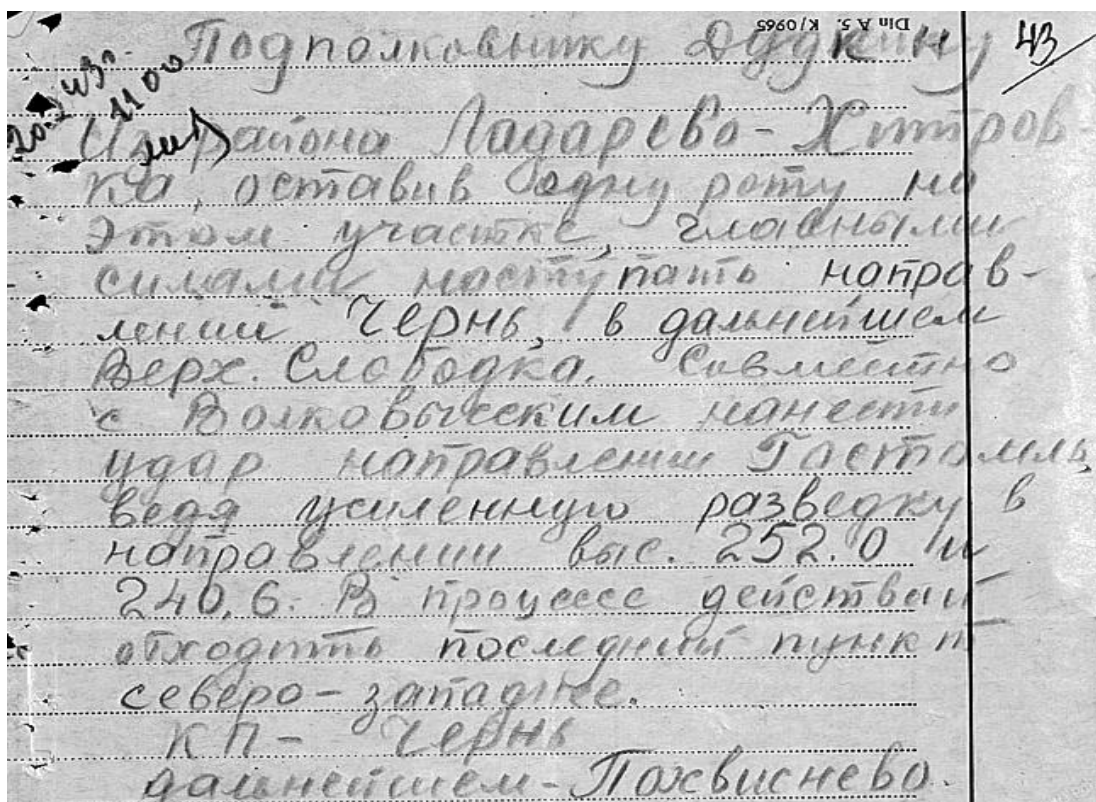 Din A 5. K/0965
43
Подполковнику Дудкину
1100
Из района Лагарево - Хитров-
ка, оставив одну роту на
этом участке, главными
силами наступать направ-
лении Чернь, в дальнейшем
Верх. Слободка. Совместно
с Волковысским нанести
удар направлении Гастомль,
ведя усиленную разведку в
направлении выс. 252.0 и
240,6. В процессе действий
отходить последний пункт
северо-западнее.
КП - Чернь
дальнейшем - Похвиснево.